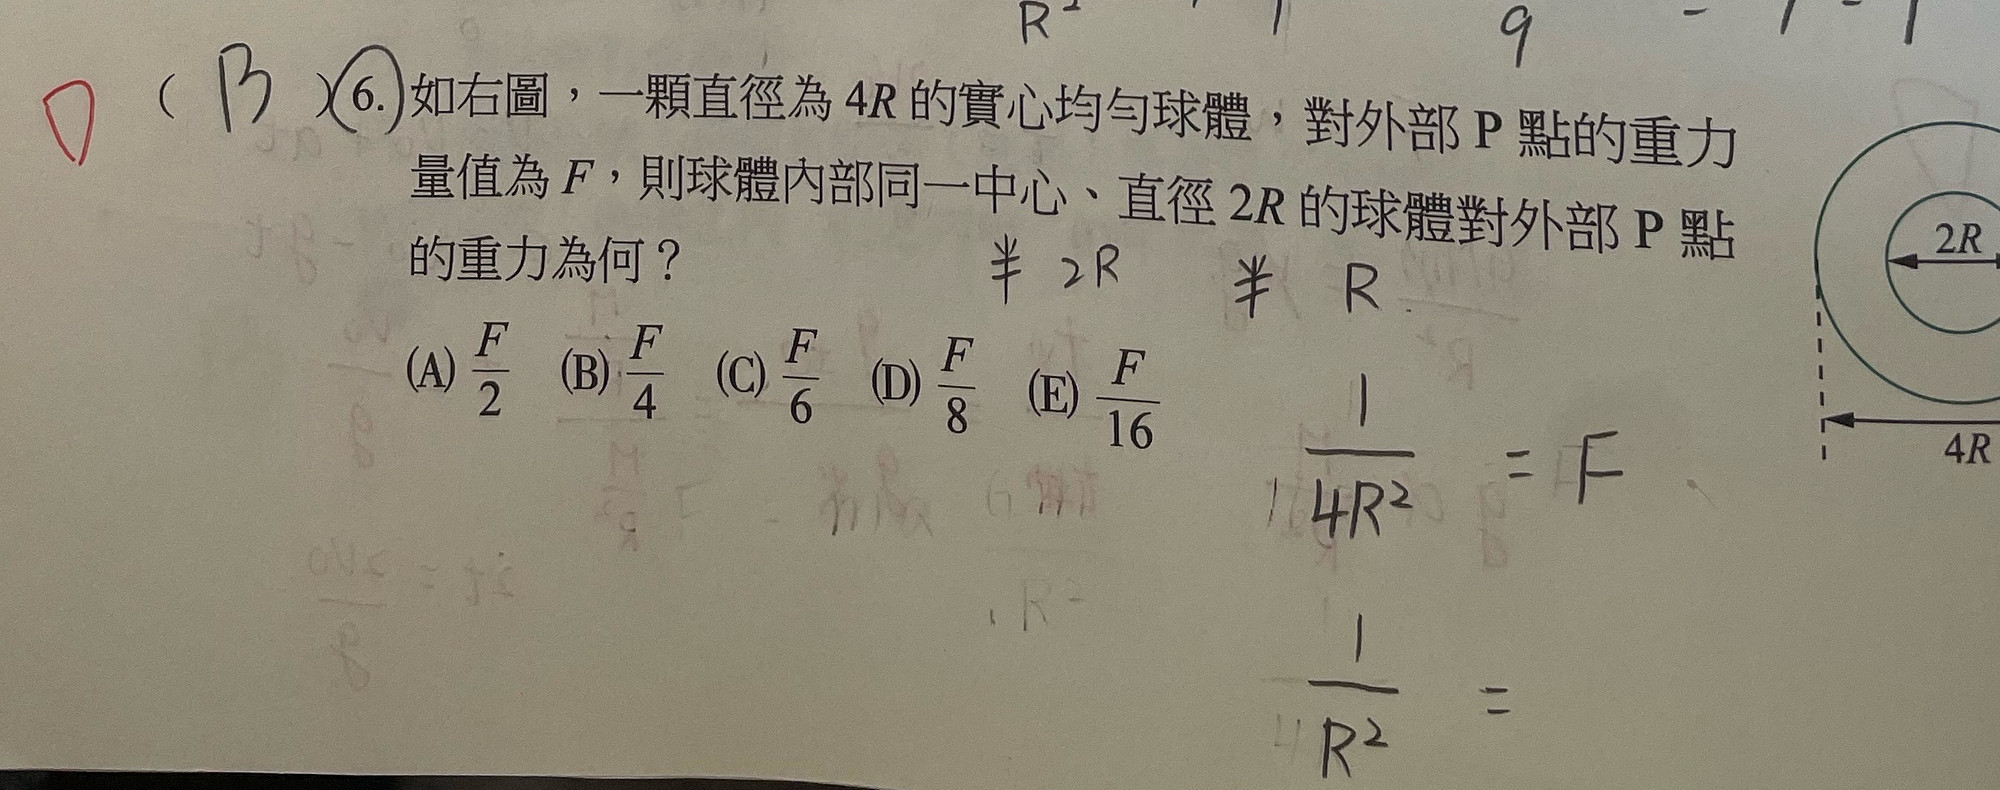 R²
9
( B ) 6. 如右圖，一顆直徑為 4R 的實心均勻球體，對外部 P 點的重力
量值為 F，則球體內部同一中心、直徑 2R 的球體對外部 P 點
的重力為何？
半 2R 半 R
(A) F/2 (B) F/4 (C) F/6 (D) F/8 (E) F/16
1/4R² = F
1/R² =
2R
4R